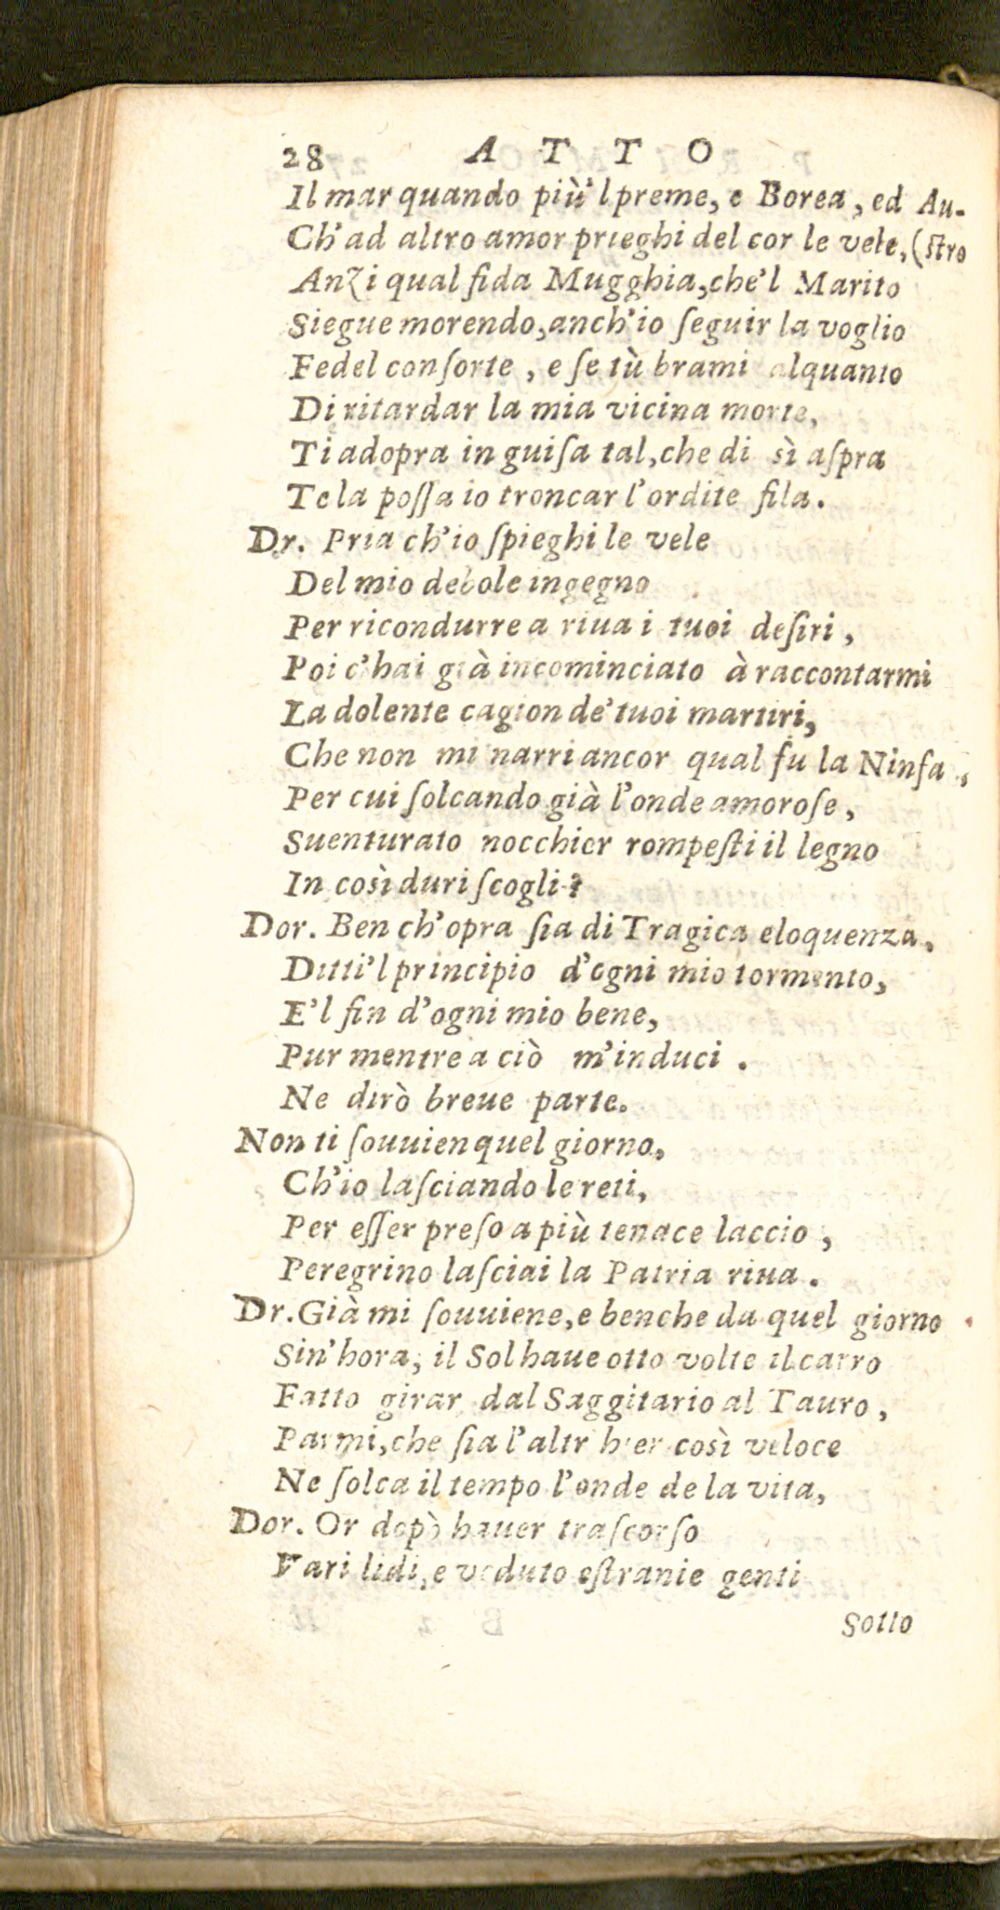 28 ATTO
Il mar quando più'l preme, e Borea, ed Au-
Ch'ad altro amor prieghi del cor le vele, (ſtro
Anzi qual fida Mugghia, che'l Marito
Siegue morendo, anch'io ſeguir la voglio
Fedel conſorte, e ſe tù brami alquanto
Di ritardar la mia vicina morte,
Ti adopra in guiſa tal, che di sì aſpra
Tela poſſa io troncar l'ordite fila.
Dr. Pria ch'io ſpieghi le vele
Del mio debole ingegno
Per ricondurre a riua i tuoi deſiri,
Poi c'hai già incominciato à raccontarmi
La dolente cagion de'tuoi martiri,
Che non mi narri ancor qual fu la Ninfa,
Per cui ſolcando già l'onde amoroſe,
Suenturato nocchier rompeſti il legno
In così duri ſcogli?
Dor. Ben ch'opra ſia di Tragica eloquenza,
Ditti'l principio d'ogni mio tormento,
E'l fin d'ogni mio bene,
Pur mentre a ciò m'induci.
Ne dirò breue parte.
Non ti ſouuien quel giorno,
Ch'io laſciando le reti,
Per eſſer preſo a più tenace laccio,
Peregrino laſciai la Patria riua.
Dr. Già mi ſouuiene, e benche da quel giorno
Sin'hora, il Sol haue otto volte il carro
Fatto girar dal Saggitario al Tauro,
Parmi, che ſia l'altr'hier così veloce
Ne ſolca il tempo l'onde de la vita,
Dor. Or dopò hauer traſcorſo
Vari lidi, e veduto eſtranie genti
Sotto